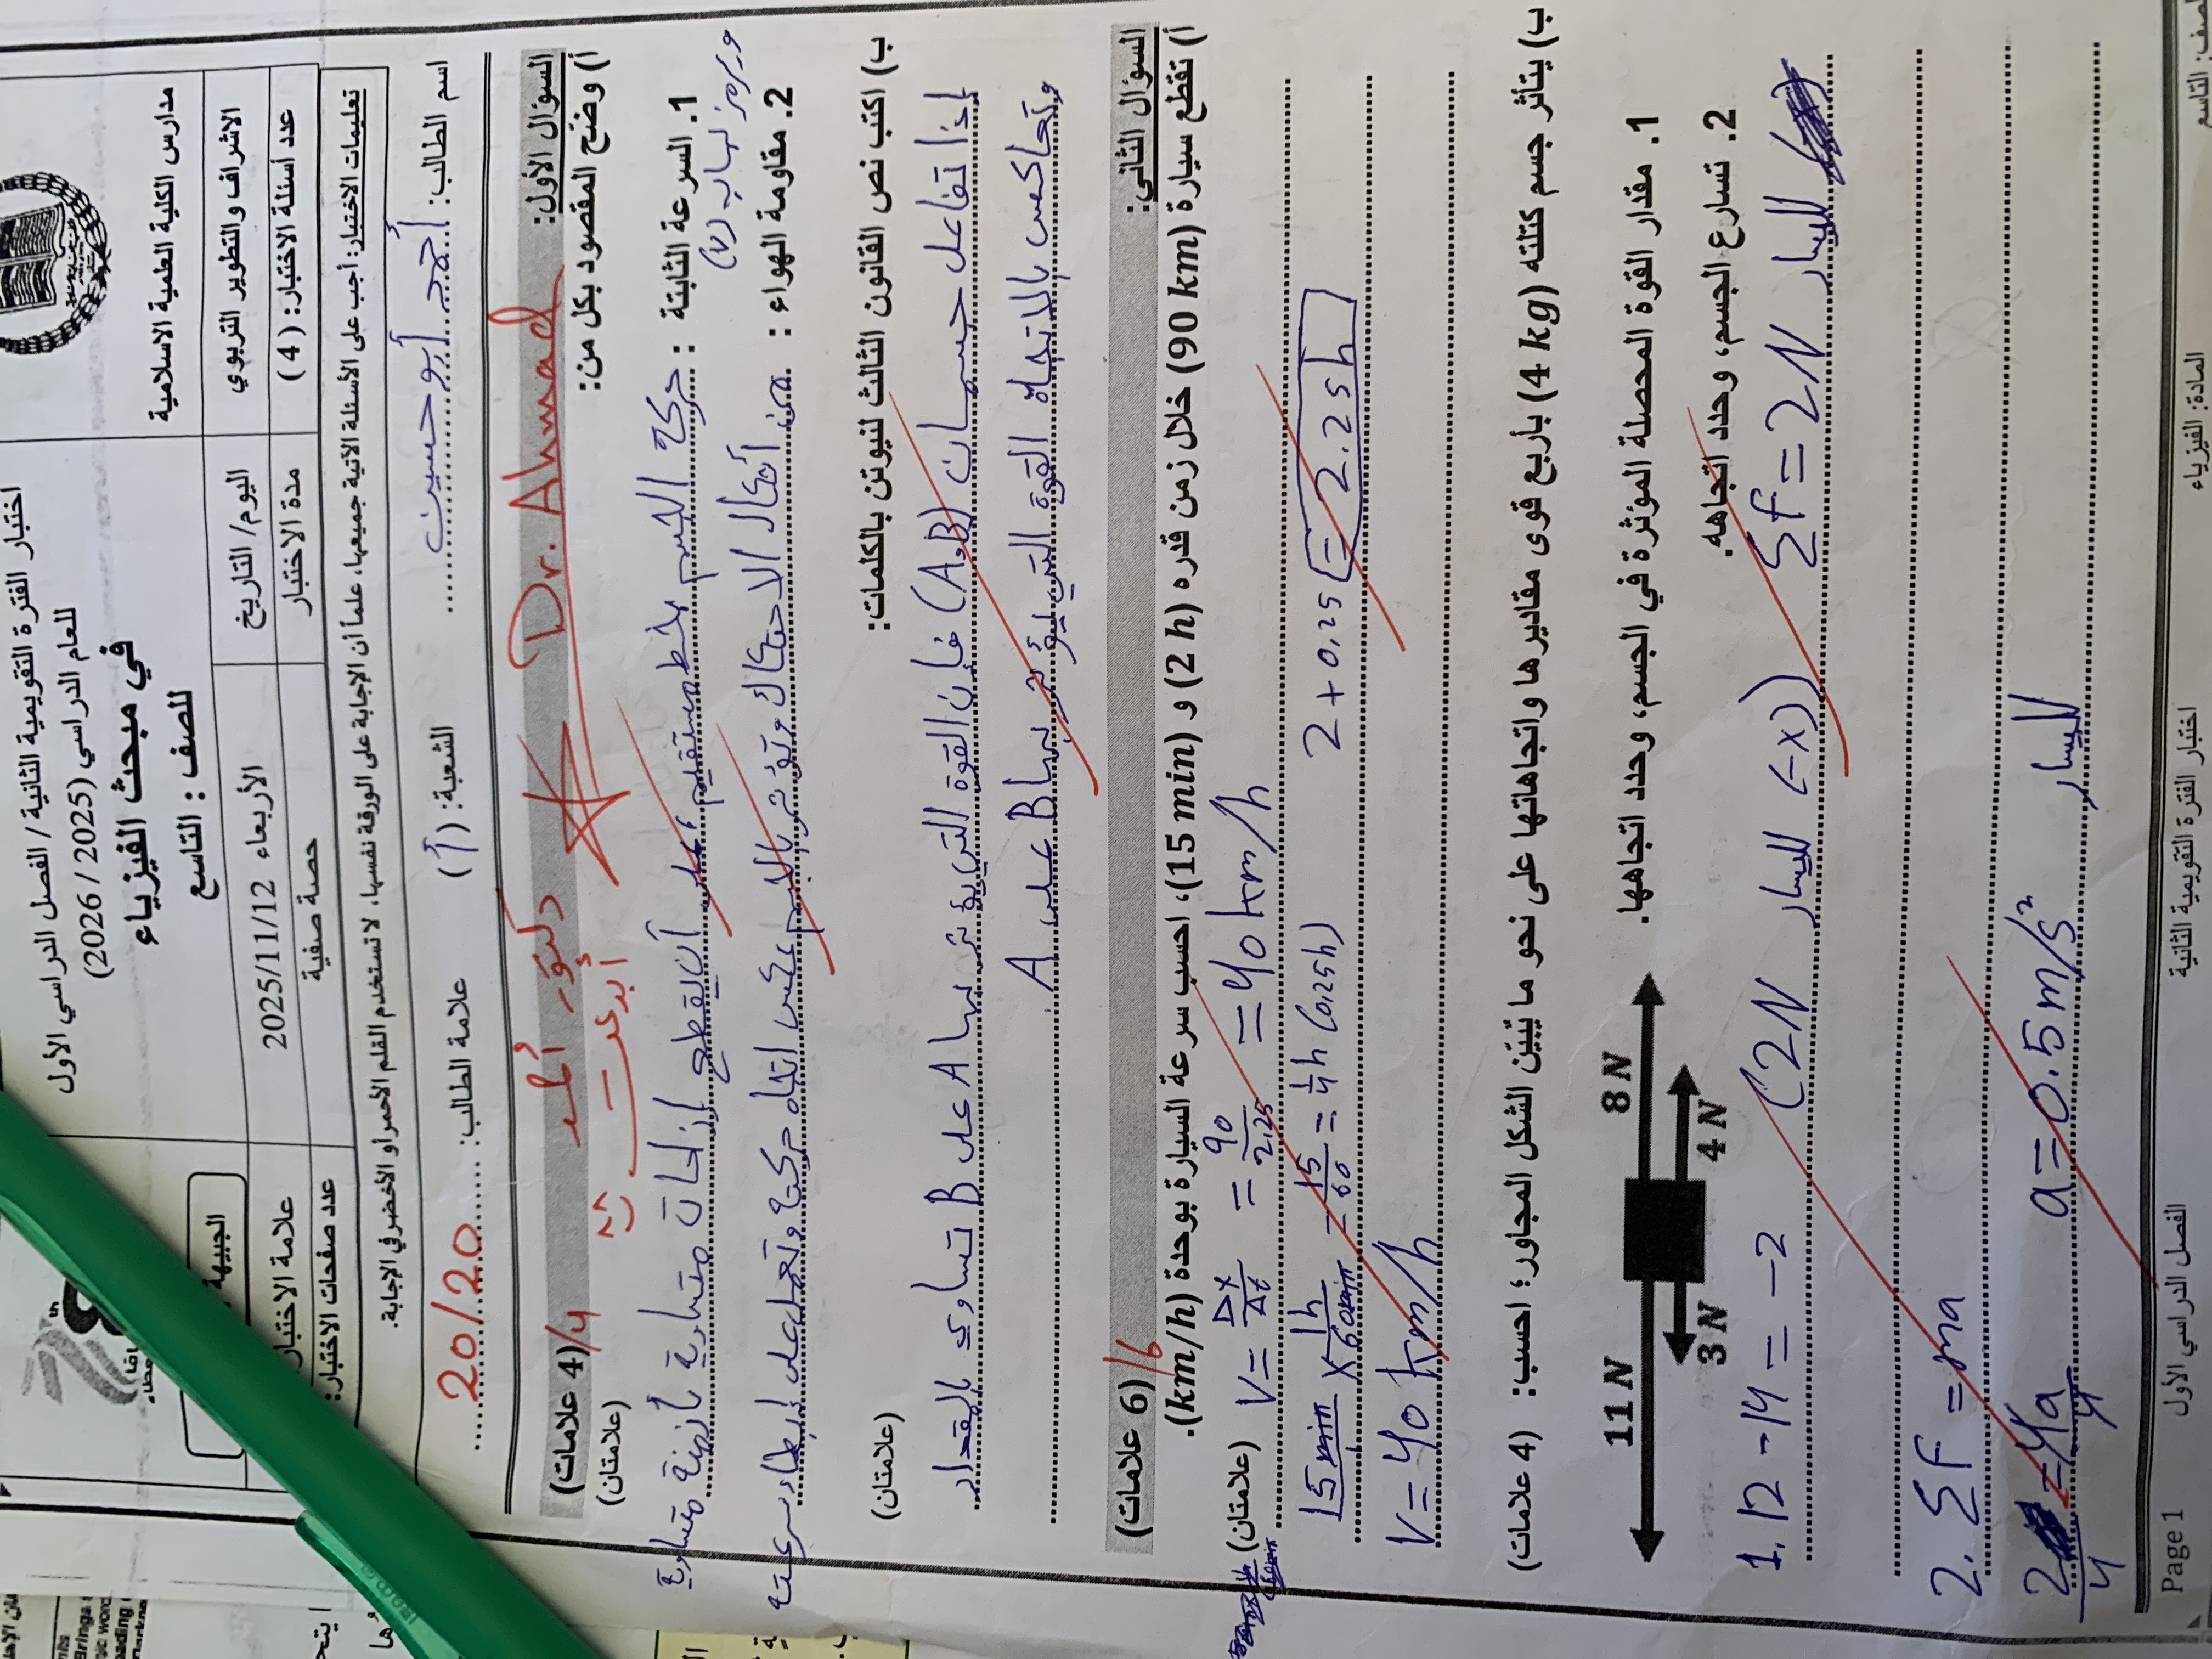 مدارس الكلية العلمية الاسلامية
اختبار الفترة التقويمية الثانية / الفصل الدراسي الأول
للعام الدراسي (2025 / 2026)
في مبحث الفيزياء
للصف : التاسع
الاشراف والتطوير التربوي
اليوم/ التاريخ
الأربعاء 2025/11/12
علامة الاختبار
عدد أسئلة الاختبار: ( 4 )
مدة الاختبار
حصة صفية
عدد صفحات الاختبار:
الجبيهة
تعليمات الاختبار: أجب على الأسئلة الآتية جميعها، علماً أن الإجابة على الورقة نفسها، لا تستخدم القلم الأحمر أو الأخضر في الإجابة.
اسم الطالب: أحمد أبو حسين
الشعبة: (أ)
علامة الطالب: 20/20
Dr. Ahmad
دكتور أحمد
أبدعت
السؤال الأول: (4 علامات) /4
أ) وضّح المقصود بكل من: (علامتان)
1. السرعة الثابتة : حركة الجسم بخط مستقيم على أن يقطع إزاحات متساوية بأزمنة متساوية
ويرمز لها بـ (v)
2. مقاومة الهواء : من أشكال الاحتكاك وتؤثر بالجسم عكس اتجاه حركته وتعمل على إبطاء سرعته
ب) اكتب نص القانون الثالث لنيوتن بالكلمات: (علامتان)
إذا تفاعل جسمان (A,B) فإن القوة التي يؤثر بها A على B تساوي بالمقدار
وتعاكس بالاتجاه القوة التي يؤثر بها B على A.
السؤال الثاني: (6 علامات) /6
أ) تقطع سيارة (90 km) خلال زمن قدره (2 h) و (15 min)، احسب سرعة السيارة بوحدة (km/h).
(علامتان) V = Δx/Δt = 90/2.25 = 40 km/h
15 min × 1h/60min = 15/60 = 1/4 h (0.25h) 2 + 0.25 = 2.25h
V = 40 km/h
ب) يتأثر جسم كتلته (4 kg) بأربع قوى مقاديرها واتجاهاتها على نحو ما يُبيّن الشكل المجاور؛ احسب: (4 علامات)
1. مقدار القوة المحصلة المؤثرة في الجسم، وحدد اتجاهها.
2. تسارع الجسم، وحدد اتجاهه.
11 N
8 N
3 N
4 N
1. 12 - 14 = -2 (2N لليسار (-x)) Σf = 2N لليسار
2. Σf = ma
2/4 = 4a/4 a = 0.5 m/s² لليسار
Page 1
الفصل الدراسي الأول
اختبار الفترة التقويمية الثانية
المادة: الفيزياء
الصف: التاسع